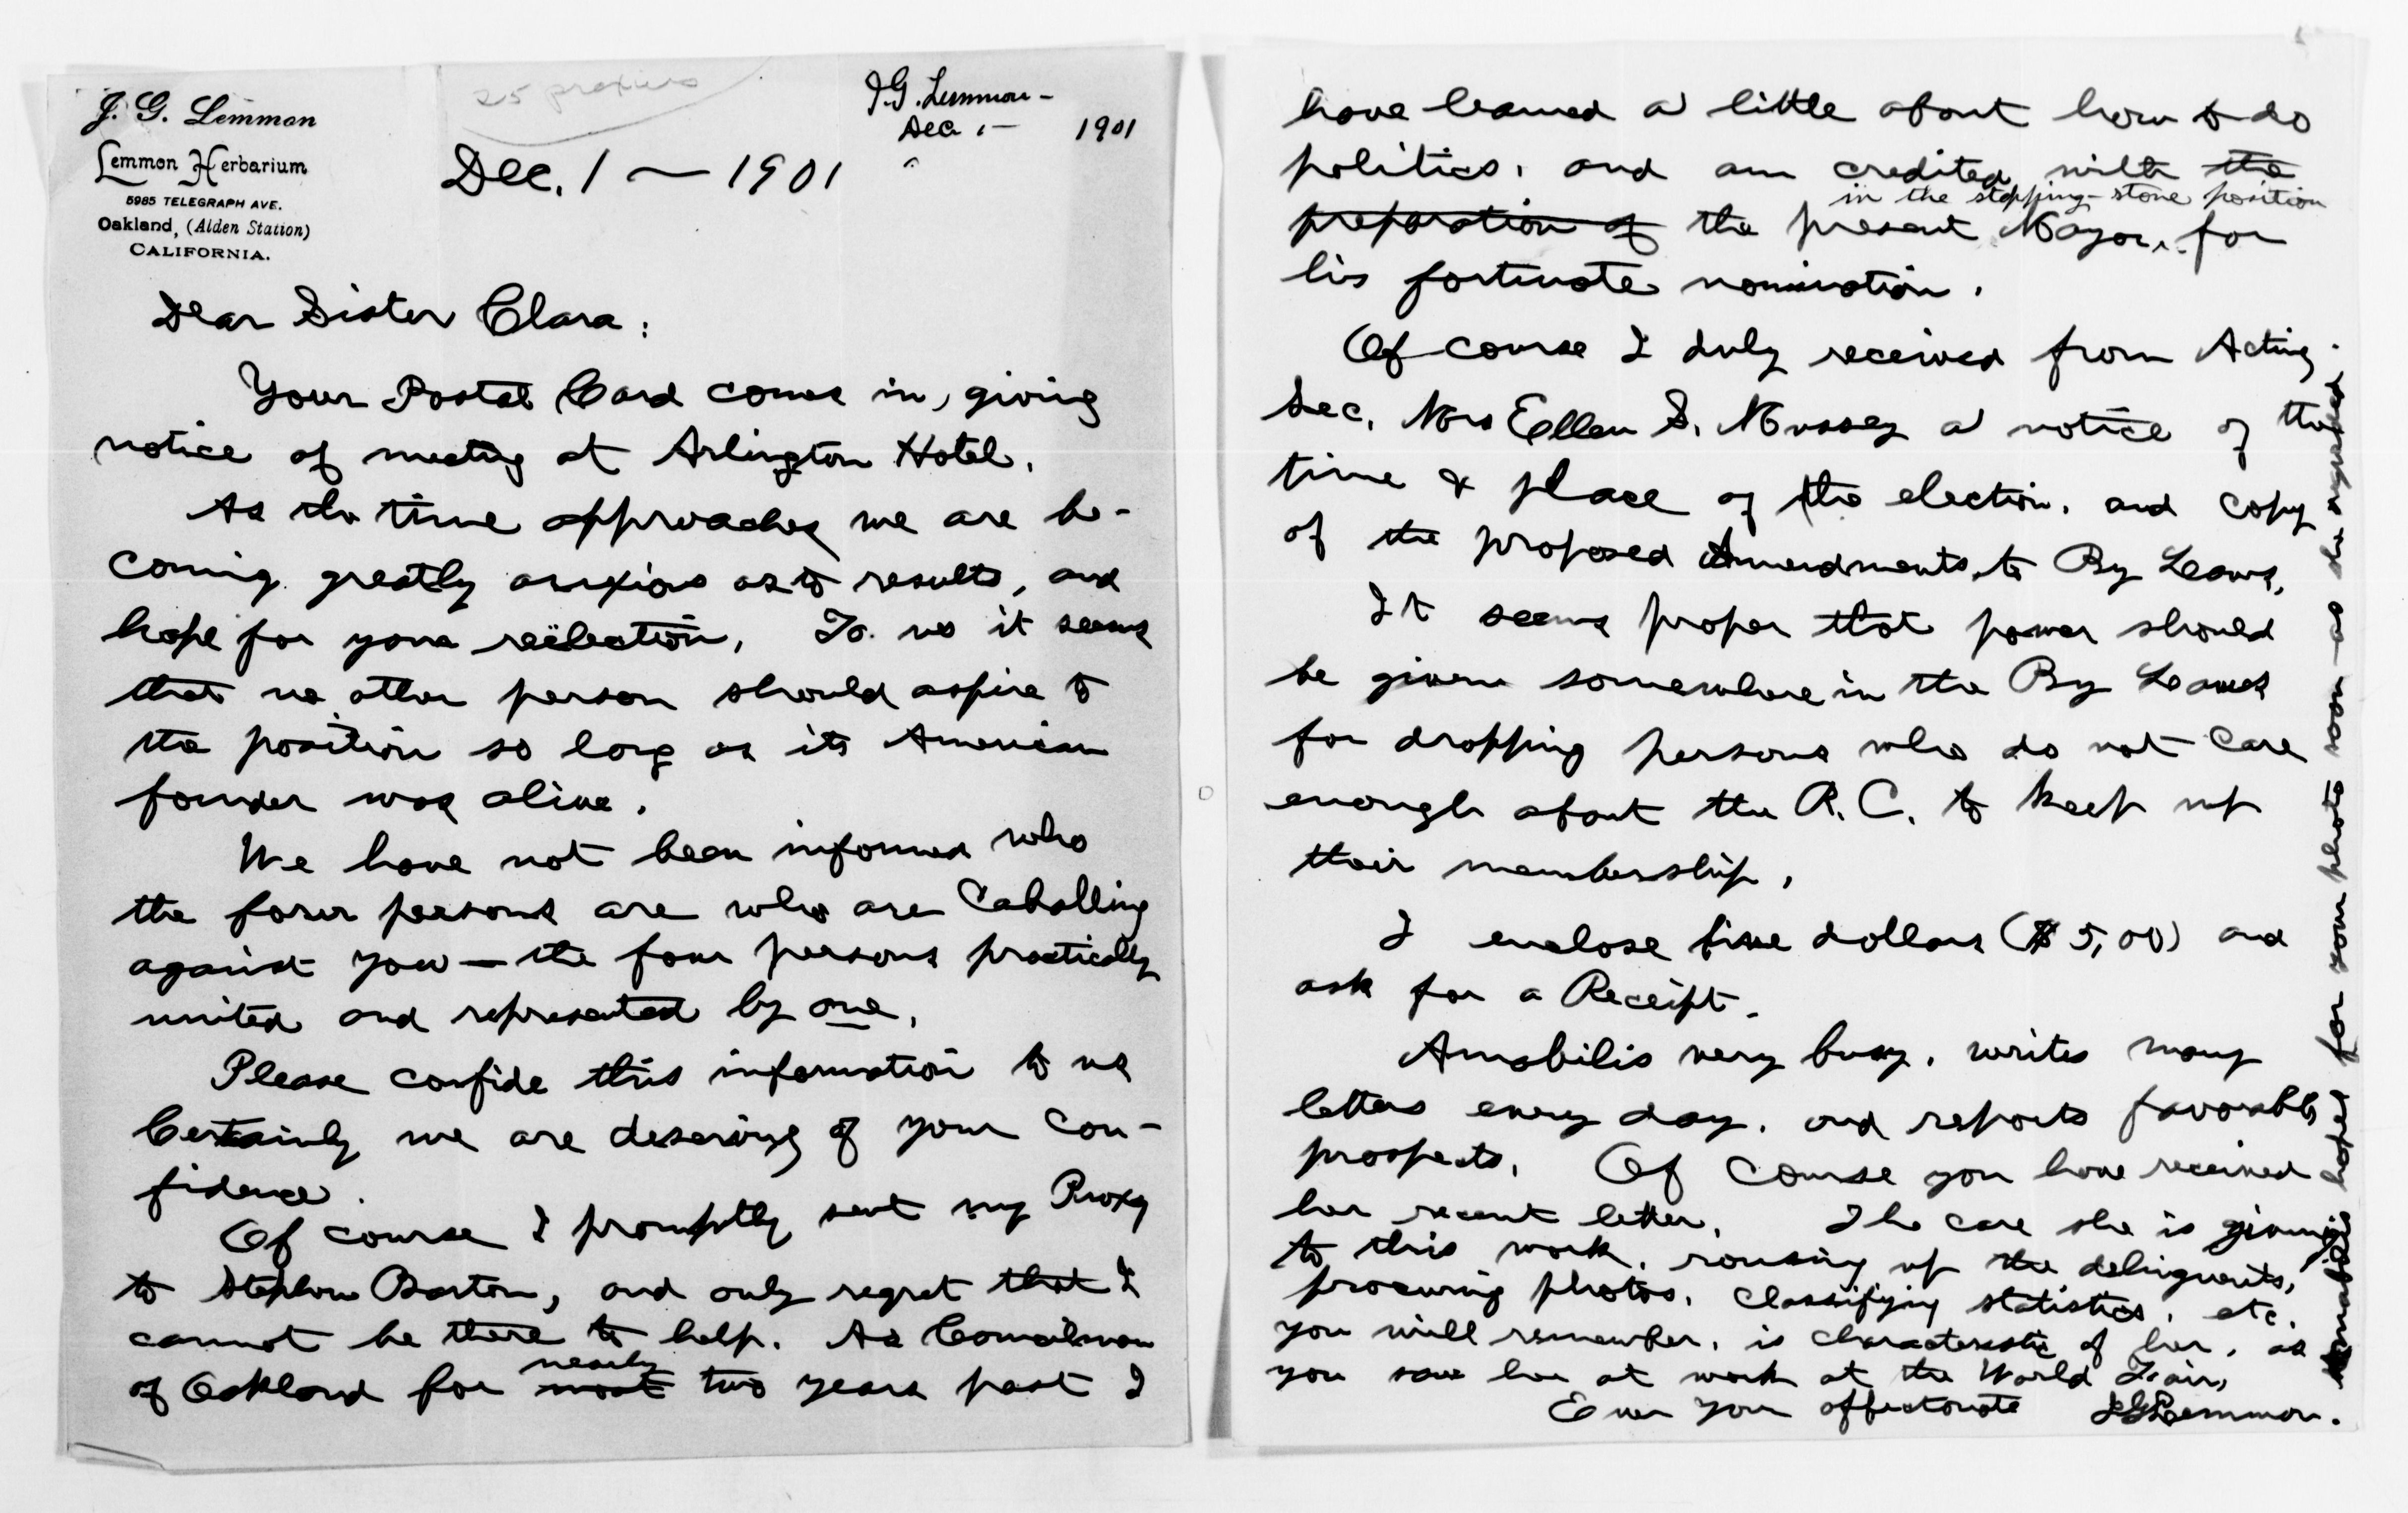 J. G. Lemmon
Lemmon Herbarium
5985 TELEGRAPH AVE.
Oakland, (Alden Station)
CALIFORNIA.
25 proxies
J.G. Lemmon -
Dec. 1 -
1901
Dec. 1 — 1901
Dear Sister Clara:
Your Postal Card comes in, giving
notice of meeting at Arlington Hotel.
As the time approaches we are be-
coming greatly anxious as to results, and
hope for your reëlection. To us it seems
that no other person should aspire to
the position so long as its American
founder was alive.
We have not been informed who
the four persons are who are Caballing
against you — the four persons practically
united and represented by one.
Please confide this information to us
Certainly we are deserving of your con-
fidence.
Of course I promptly sent my Proxy
to Stephen Barton, and only regret that I
cannot be there to help. As Councilman
nearly
of Oakland for most two years past I
have learned a little about how to do
politics, and am credited with the
in the stepping-stone position
preparation of the present Mayor, for
his fortunate nomination.
Of course I duly received from Acting
Sec. Mrs Ellen S. Mussey a notice of the
time & place of the election, and copy
of the proposed Amendments to By Laws.
It seems proper that power should
be given somewhere in the By Laws
for dropping persons who do not care
enough about the R. C. to keep up
their membership.
I enclose five dollars ($5,00) and
ask for a Receipt.
Amabilis very busy, writes many
letters every day, and reports favorable
prospects. Of course you have received
her recent letter. The care she is giving
to this work, rousing up the delinquents,
procuring photos, classifying statistics, etc.
you will remember, is characteristic of her, as
you saw her at work at the World Fair,
Ever your affectionate JGLemmon.
Amabilis hopes for your photo soon - as she requested.